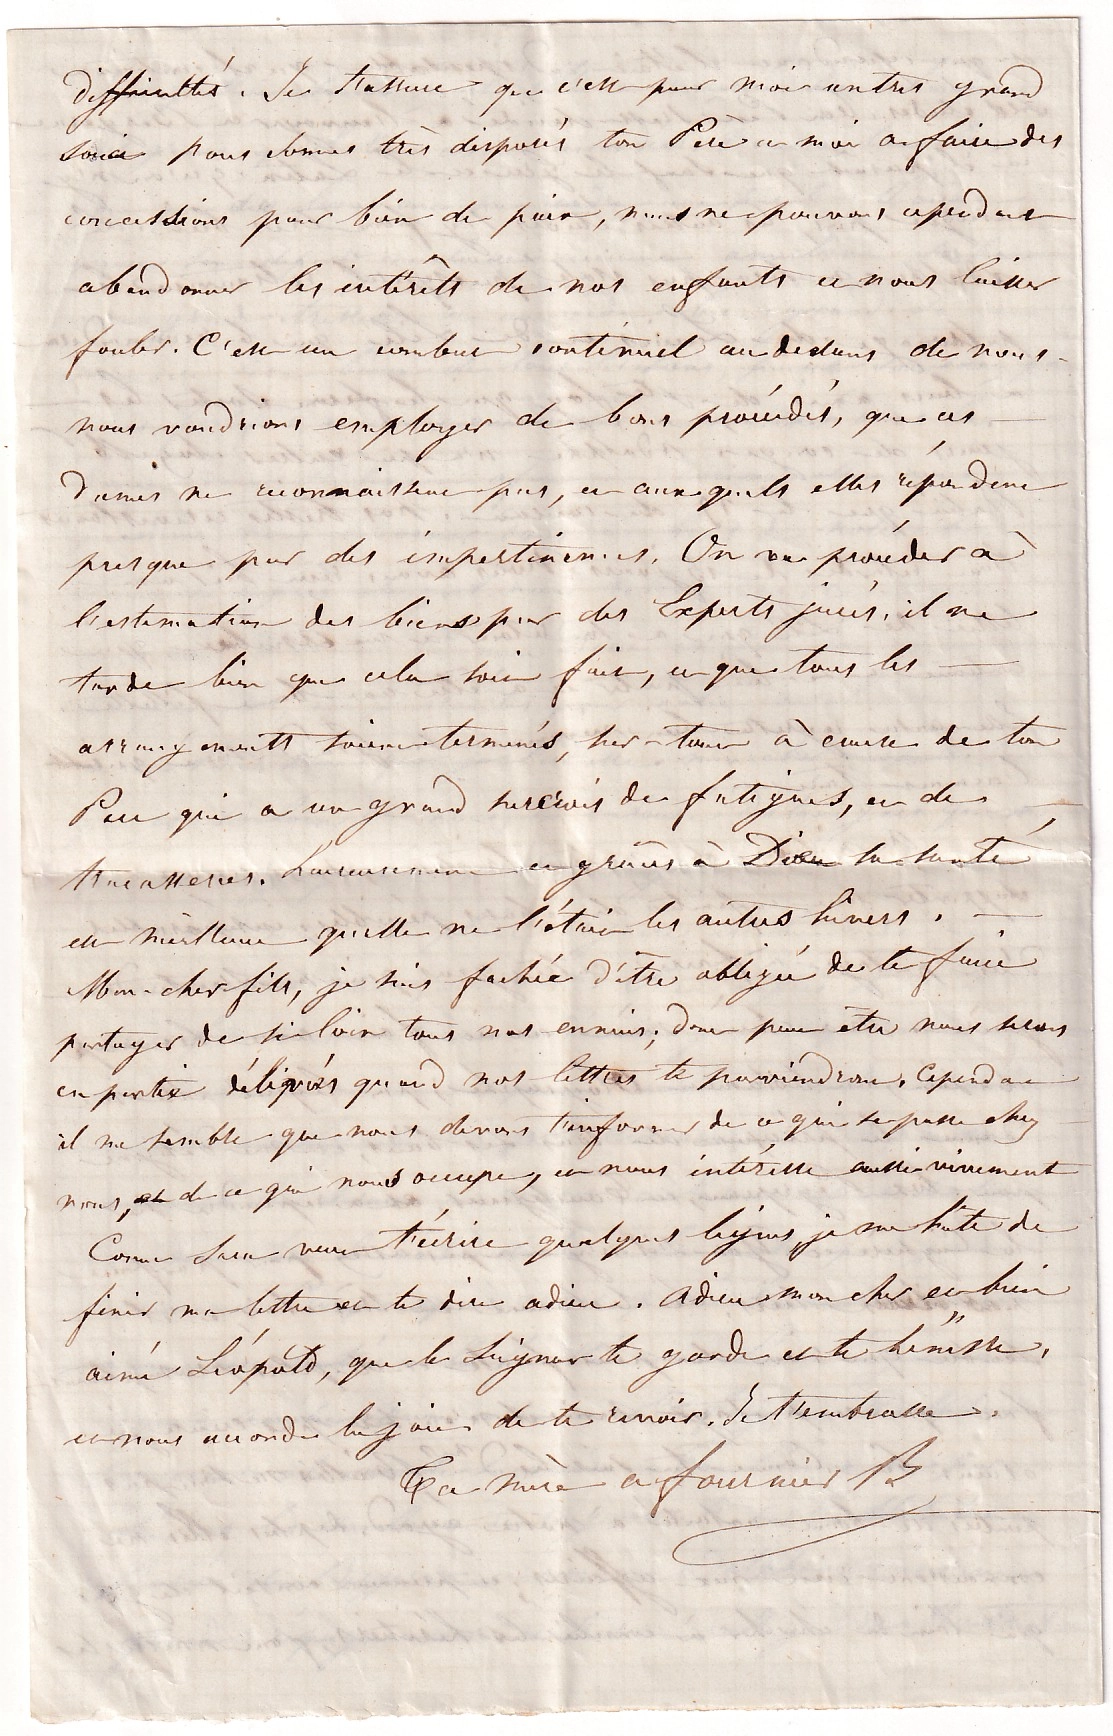 difficultés. Je t'assure que c'est pour moi un très grand
souci nous sommes très disposés ton Père et moi a faire des
concessions pour bien de paix, nous ne pouvons cependant
abandonner les intérêts de nos enfants et nous laisser
fouler. C'est un combat continuel au dedans de nous
nous voudrions employer de bons procédés, que ces
dames ne reconnaissent pas, et auxquels elles répondent
presque par des impertinences. On va procéder à
l'estimation des biens par des Experts jurés, il me
tarde bien que cela soit fait, et que tous les
arrangements soient terminés, sur-tout à cause de ton
Père qui a un grand surcrois de fatigues, et de
tracasseries. heureusement et grâces à Dieu sa santé
est meilleure qu'elle ne l'étoit les autres hivers.
Mon cher fils, je suis fachée d'être obligée de te faire
partager de si loin tous nos ennuis; dont peut être nous serons
en partie délivrés quand nos lettres te parviendront. Cependant
il me semble que nous devons t'informer de ce qui se passe chez
nous, et de ce qui nous occupe, et nous intéresse aussi vivement
Comme veut t'écrire quelques lignes, je me hâte de
finir ma lettre et te dire adieu. Adieu mon cher et bien
aimé Léopold, que le Seigneur te garde et te bénisse,
et nous accorde la joie de te revoir. Je t'embrasse.
Ta mère a fournier B